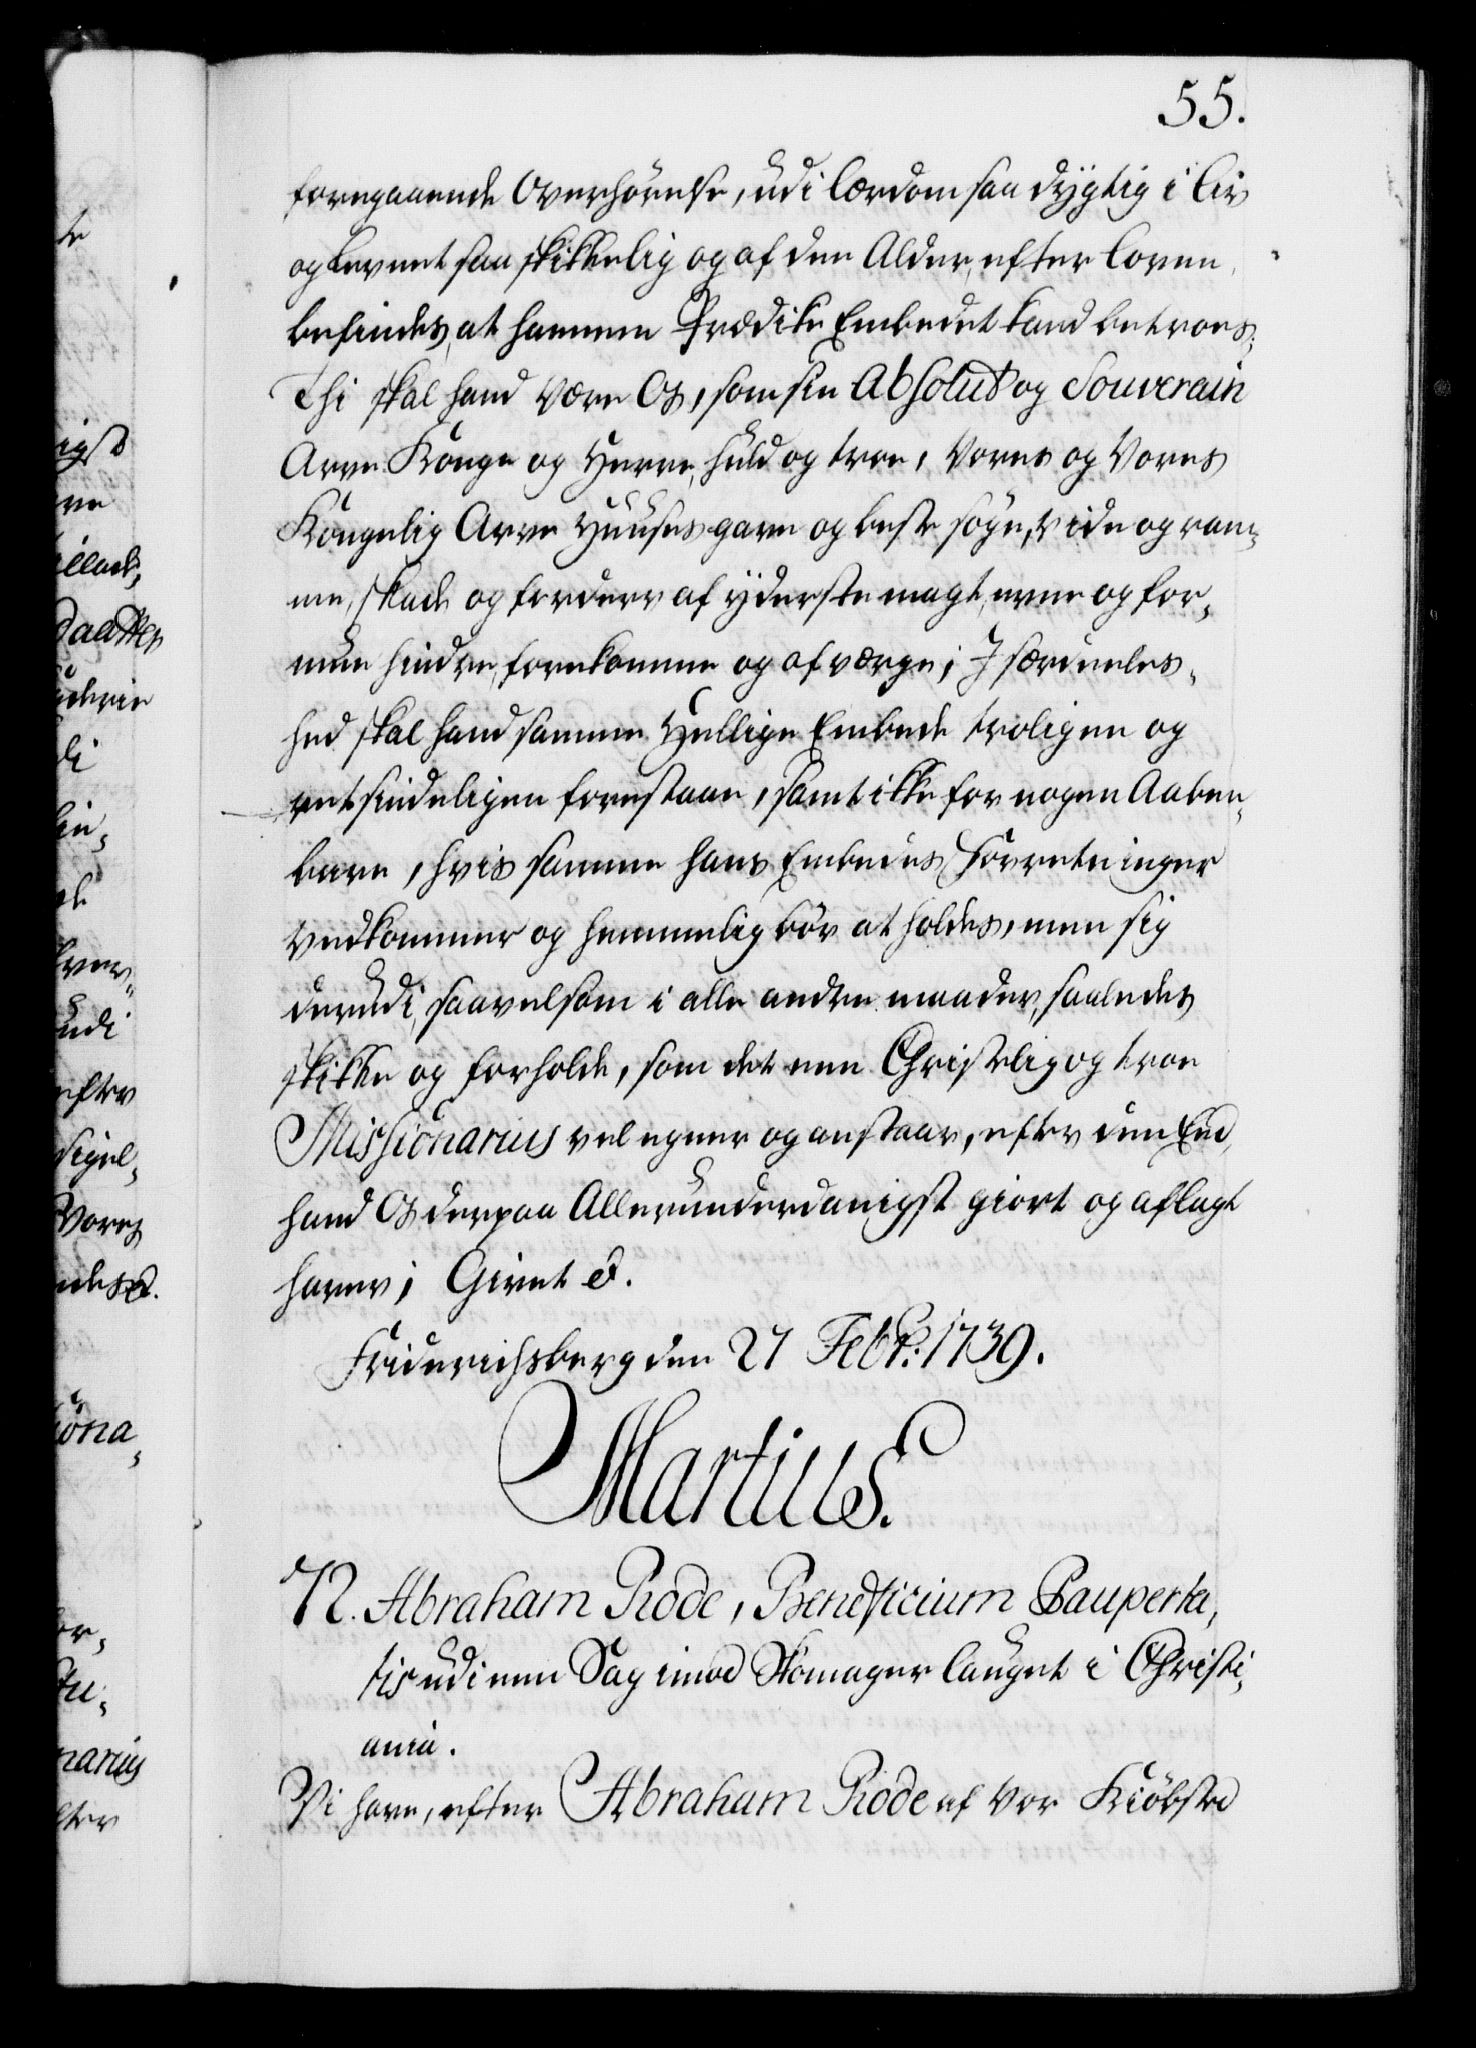 55.
foregaaende Overhørelse, udi Lærdom saa dygtig i Liv
og Levnet saa skikkelig og af den Alder, efter Loven
befindes, at hannem Prædike Embedet kand betroes;
Thi skal hand være Os, som sin Absolut og Souverain
Arve Konge og Herre, huld og troe, Vores og Vores
Kongelig Arve Huuses gavn og beste søge, vide og ram¬
me, skade og forderv af yderste magt, evne og for¬
mue hindre, forekomme og afværge; I særdeeles¬
hed skal hand samme Hellige Embede troligen og
retsindeligen forestaae, samt ikke for nogen Aaben¬
bare, hvis samme hans Embedes Forretninger
vedkommer og hemmelig bør at holdes, men sig
derudi, saavelsom i alle andre maader, saaledes
skikke og forholde, som det een Christelig og troe
Missionarius vel egner og anstaar, efter den Eed,
hand Os derpaa Allerunderdanigst giort og aflagt
haver; Givet &.
Friderichsberg den 27 Febr: 1739.
Martius.
72. Abraham Rode, Beneficium Pauperta¬
tis udi een Sag imod Skomager Lauget i Christi¬
ania.
Vi have, efter Abraham Rode af vor Kiøbsted
te
igst
ere
illad,
Daattes
uderie
di
lin¬
de
hver¬
udi
efter
sigel¬
Vores
iona¬
or¬
narius
efter